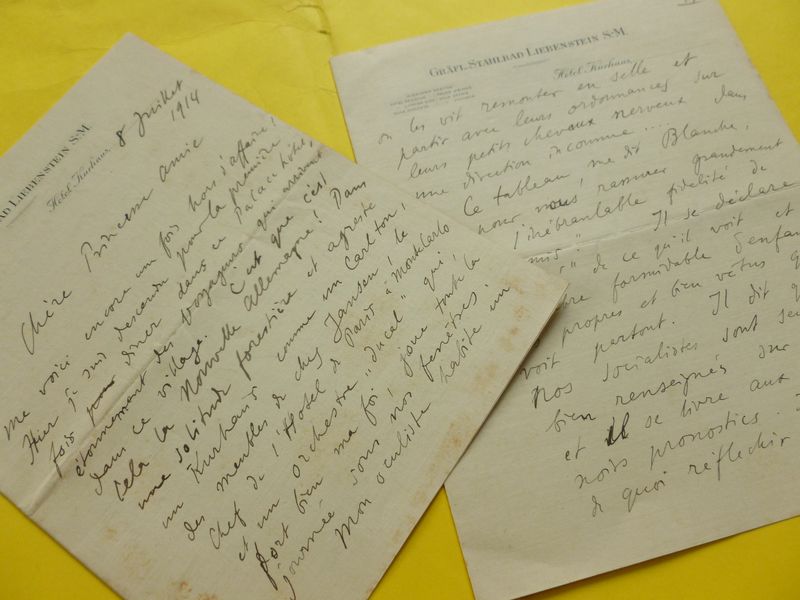 AD LIEBENSTEIN S.M.
Hotel Kurhaus,
8 Juillet
1914
Chère Princesse Amie
me voici encore un fois hors d'affaire!
Hier je suis descendu pour la première
fois pour dîner dans ce Palace hôtel,
étonnement des voyageurs qui arrivent
dans ce village. C'est que c'est
cela la Nouvelle Allemagne! Dans
une solitude forestière et agreste
un Kurhaus comme un Carlton,
des meubles de chez Jansen, le
chef de l'Hotel de Paris à MonteCarlo
et un orchestre "ducal" qui,
fort bien ma foi, joue toute la
journée sous nos fenêtres.
Mon oculiste habite un
GRÄFL. STAHLBAD LIEBENSTEIN S.-M.
Hotel Kurhaus,
on les vit remonter en selle et
partir avec leurs ordonnances sur
leurs petits chevaux nerveux dans
une direction inconnue....
Ce tableau, me dit Blanche,
pour nous rassurer grandement
l'inébranlable fidélité de
mis". Il se déclare
" de ce qu'il voit et
bre formidable d'enfan
propres et bien vêtus q
voit partout. Il dit q
Nos socialistes sont se
bien renseignés sur
et Il se livre aux
noirs pronostics.
de quoi réfléchir